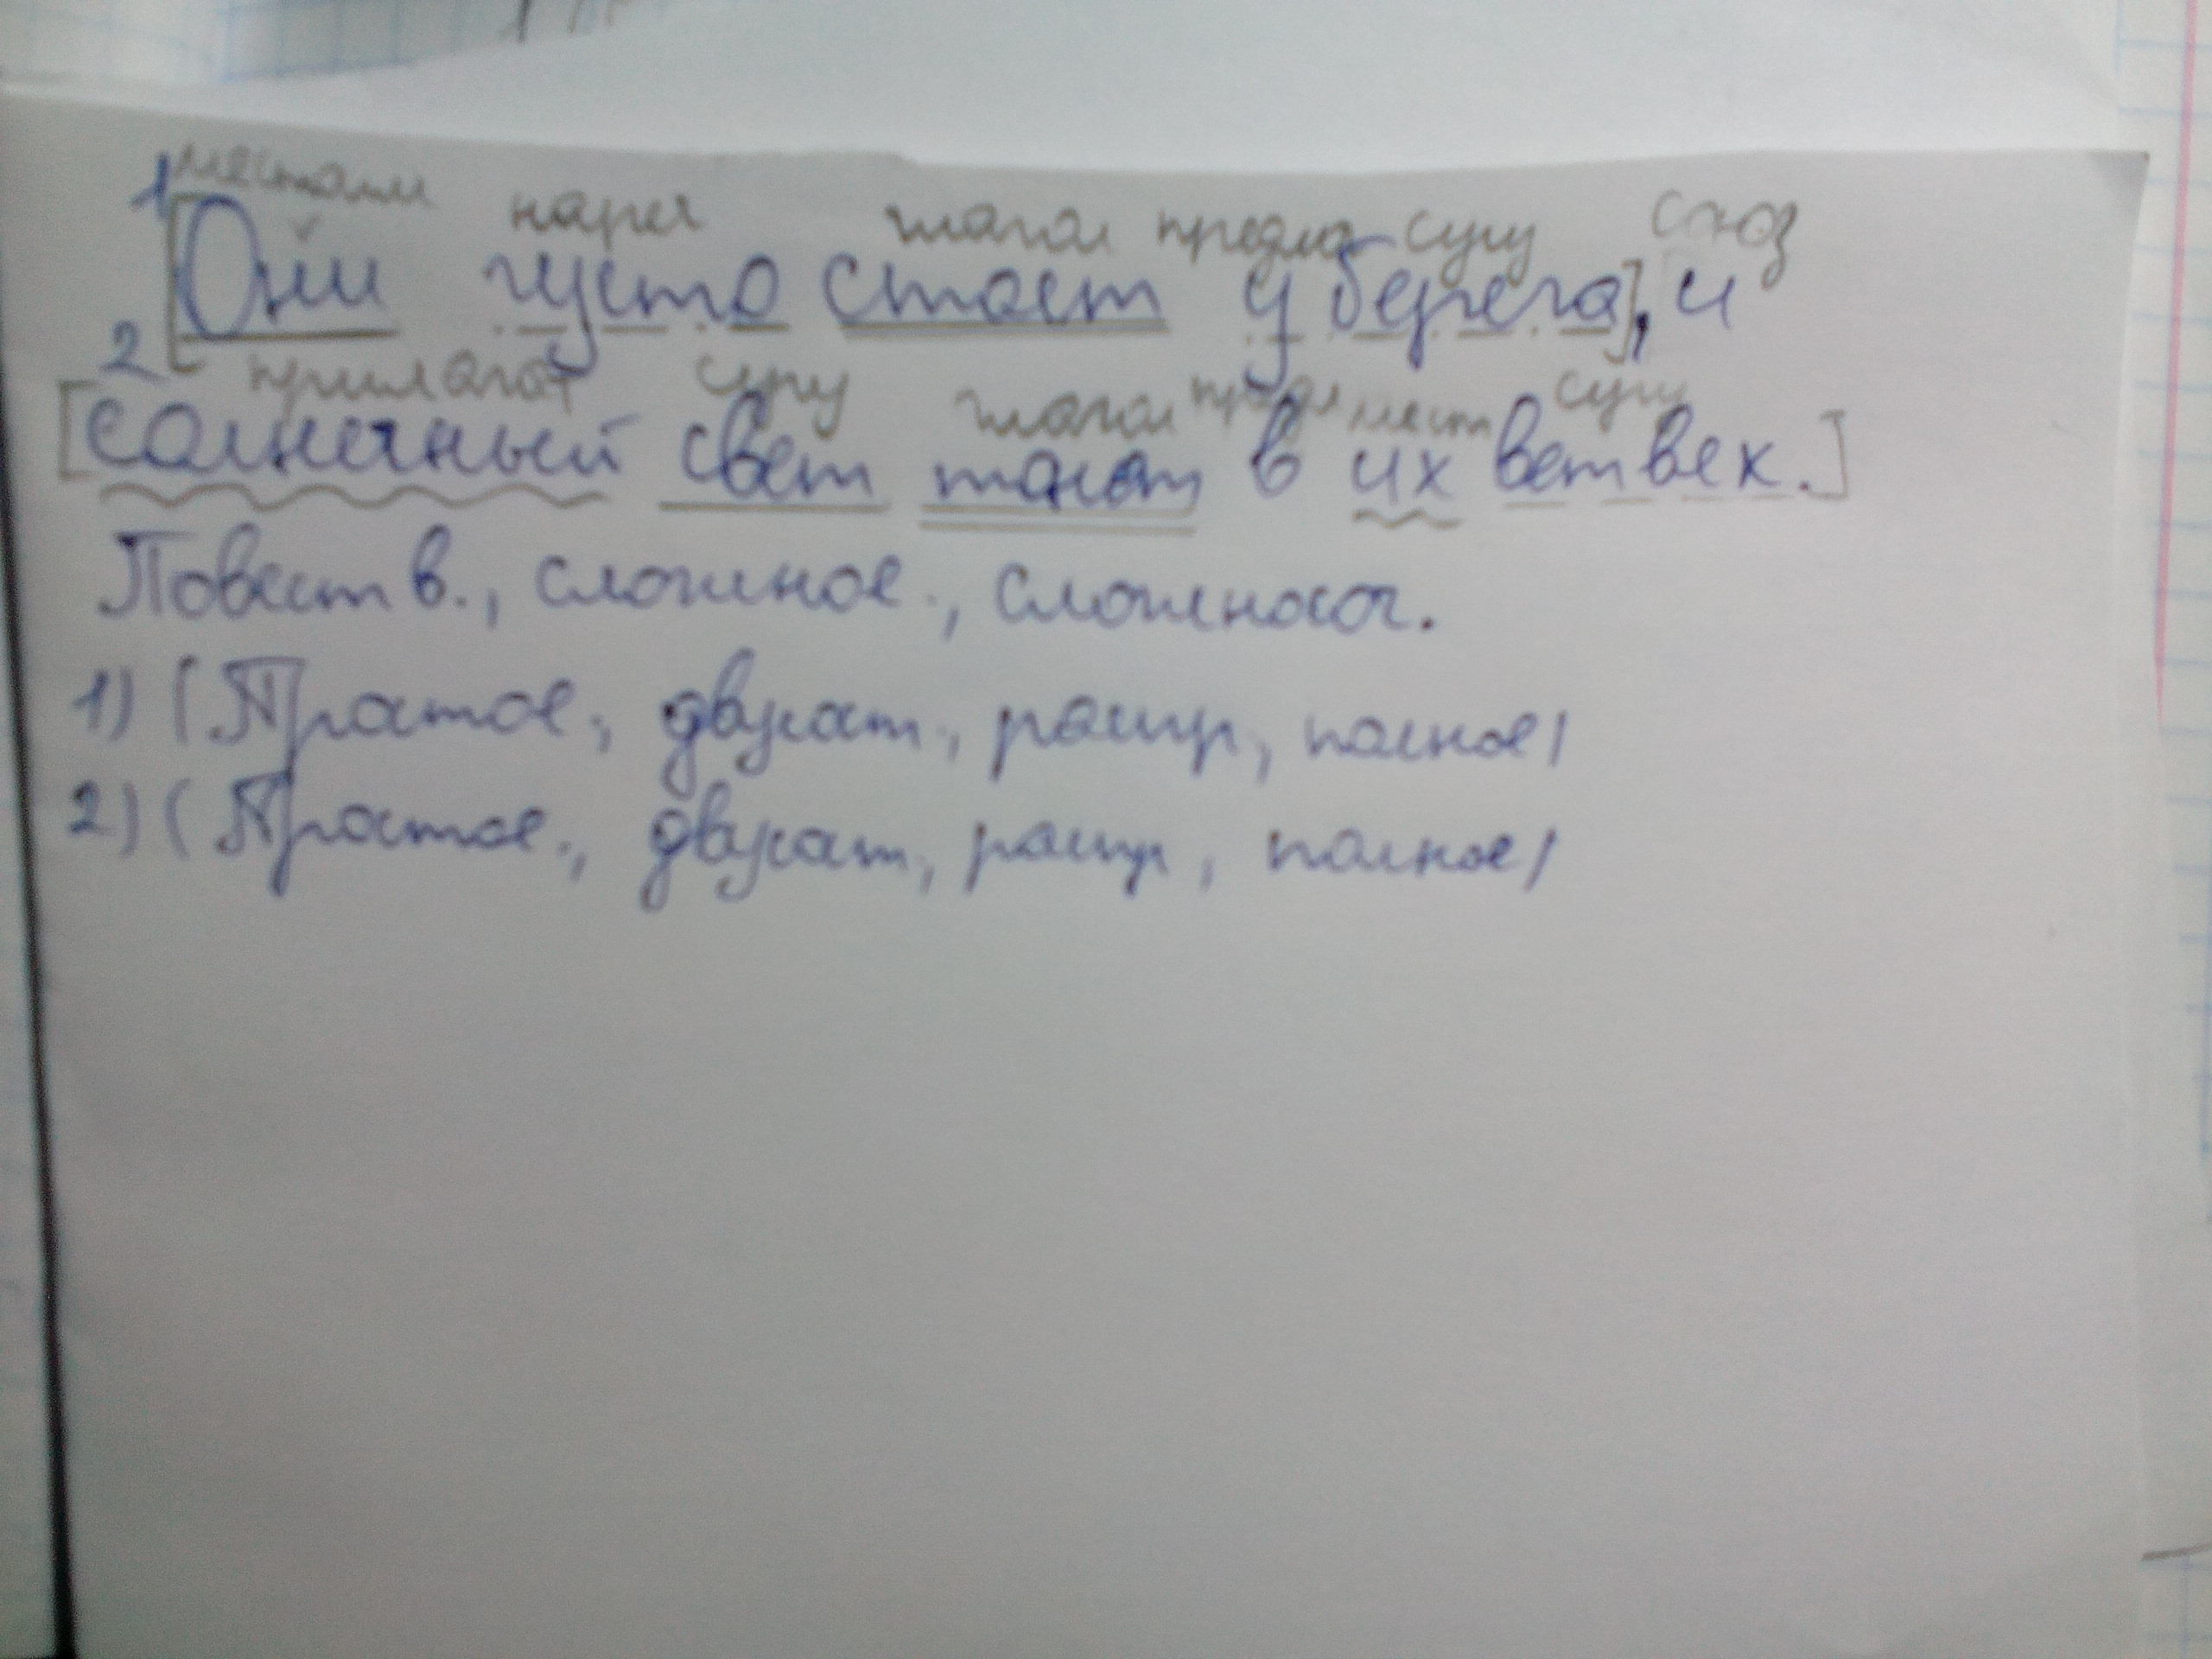 1 местоим нареч глагол предлог сущ союз
[Они густо стоят у берега], и
2 прилагат сущ глагол предл мест сущ
[солнечный свет тонет в их ветвях.]
Повеств., сложное., сложносоч.
1) (Простое., двусост., распр, полное)
2) (Простое., двусост, распр, полное)